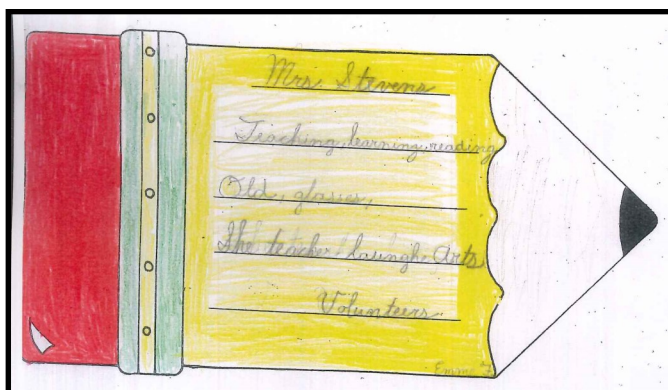 Mrs. Stevens
Teaching, learning, reading
Old, glasses,
The teacher laungh Arts
Volunteers
Emma F